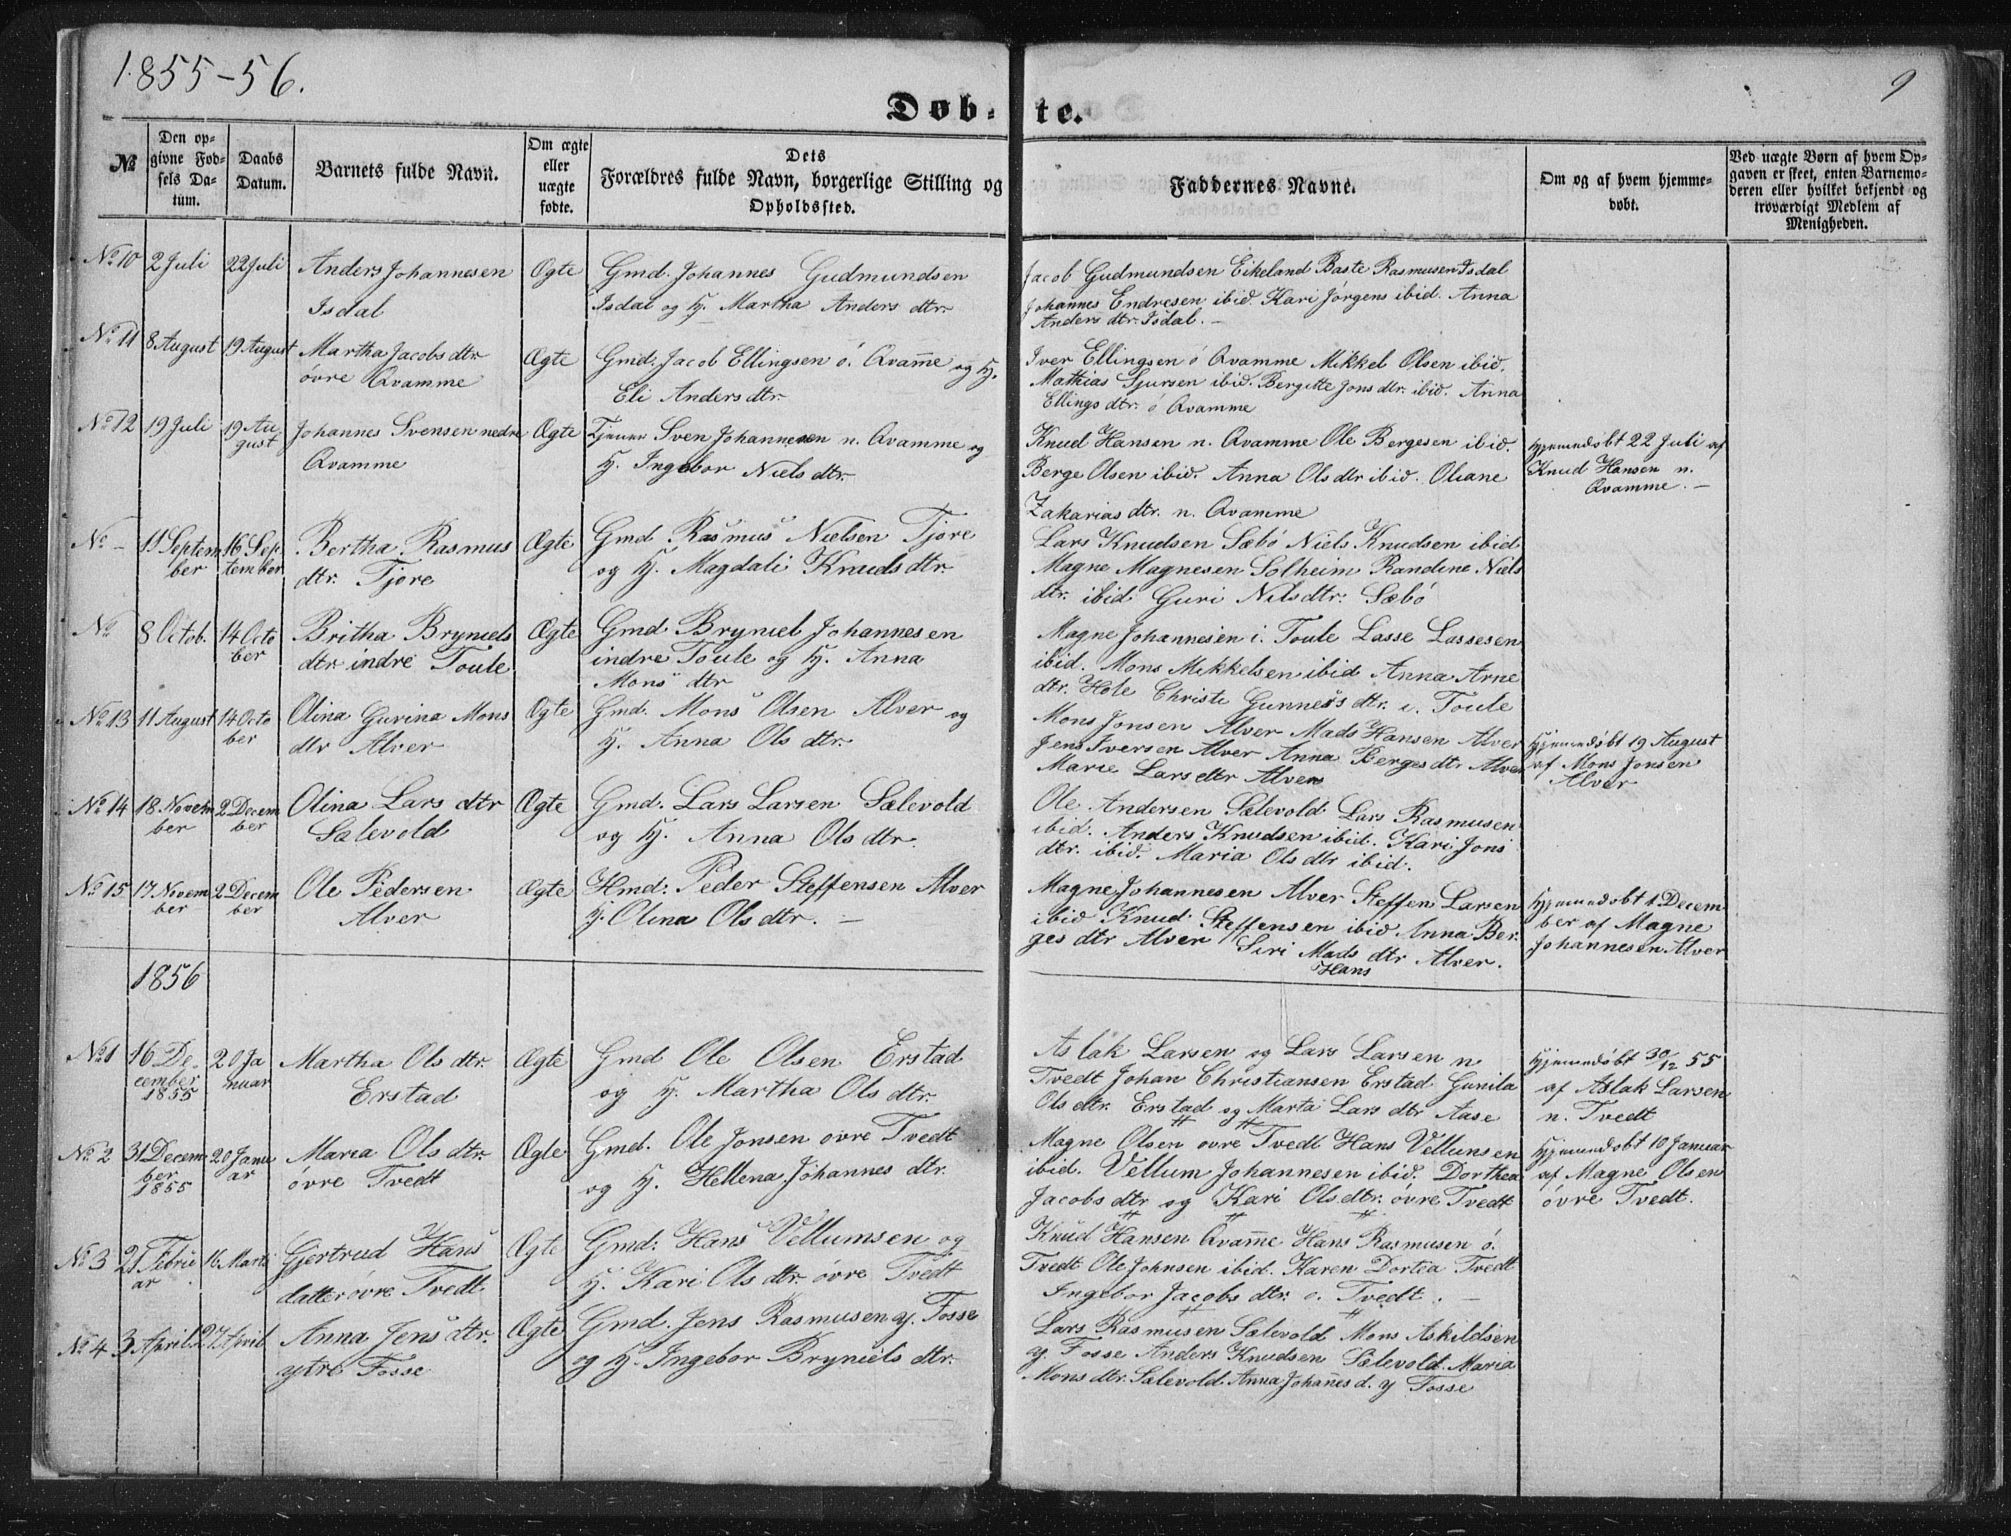 1855-56.
9
Døb-te.
№
Den opgivne Fødsels Datum.
Daabs Datum.
Barnets fulde Navn.
Om ægte eller uægte fødte.
Dets Forældres fulde Navn, borgerlige Stilling og Opholdssted.
Faddernes Navne.
Om og af hvem hjemmedøbt.
Ved uægte Børn af hvem Opgaven er skeet, enten Barnemoderen eller hvilket bekjendt og troværdigt Medlem af Menigheden.
No 10 2 Juli 22 Juli
Anders Johannesen
Isdal
Ægte
Gmd. Johannes Gudmundsen
Isdal og H. Martha Anders dtr.
Jacob Gudmundsen Eikeland Baste Rasmusen Isdal
Johannes Endresen ibid. Kari Jörgens ibid. Anna
Anders dtr. Isdal. -
No 11 8 August 19 August
Martha Jacobs dtr.
övre Qvamme
Ægte
Gmd. Jacob Ellingsen ö. Qvam̄e og H.
Eli Anders dtr.
Iver Ellingsen ö Qvamme Mikkel Olsen ibid.
Mathias Sjursen ibid. Bergitte Jons dtr. ibid. Anna
Ellings dtr. ö Qvamme
No 12 19 Juli 19 Au
gust
Johannes Svensen nedre
Qvamme
Ægte
Tjener Sven Johannesen n. Qvamme og
H. Ingebor Niels dtr.
Knud Hansen n. Qvamme Ole Bergesen ibid.
Berge Olsen ibid. Anna Ols dtr ibid. Oliane
Zakarias dtr. n. Qvamme
Hjemmedöbt 22 Juli af
Knud Hansen n.
Qvamme. -
No - 11 Septem
ber
16 Sep
tember
Bertha Rasmus
dtr. Tjore
Ægte
Gmd Rasmus Nielsen Tjore
og H. Magdali Knuds dtr.
Lars Knudsen Sæbö Niels Knudsen ibid
Magne Magnesen Solheim Randine Niels
dtr. ibid Guri Nels dtr. Sæbö
No 8 Octob. 14 Octo
ber
Britha Bryniels
dtr indre Toule
Ægte
Gmd. Bryniel Johannesen
indre Toule og H. Anna
Mons dtr
Magne Johannesen i. Toule Lasse Lassesen
ibid. Mons Mikkelsen ibid Anna Arne
dtr. Hole Christi Gunners dtr. i. Toule
No 13 11 August 14 Octo
ber
Olina Gurina Mons
dtr Alver
Ægte
Gmd. Mons Olsen Alver og
H. Anna Ols dtr.
Mons Jonsen Alver Mads Hansen Alver
Jens Iversen Alver Anna Berges dtr Alver
Marie Lars dtr Alver
Hjemmedöbt 19 August
af Mons Jonsen
Alver
No 14 18 Novem
ber
2 Decem
ber
Olina Lars dtr
Sælevold
Ægte
Gmd. Lars Larsen Sælevold
og H. Anna Ols dtr.
Ole Andersen Sælevold Lars Rasmusen
ibid. Anders Knudsen ibid. Kari Jons
dtr. ibid. Maria Ols dtr ibid.
No 15 17 Novem
ber
2 Decem
ber
Ole Pedersen
Alver
Ægte
Hmd: Peder Steffensen Alver
H. Olina Ols dtr. -
Magne Johannesen Alver Steffen Larsen
ibid Knud Steffensen ibid Anna Ber.
ges dtr Alver Siri Mads dtr Alver.
Hans
Hjemmedobt 1 Decem
ber af Magne
Johannesen Alver
1856
No 1 16 De.
cember
1855
20 Ja
nuar
Martha Ols dtr.
Erstad
Ægte
Gmd Ole Olsen Erstad
og H. Martha Ols dtr.
Aslak Larsen og Lars Larsen n.
Tvedt Johan Christiansen Erstad Gunila
Ols dtr. Erstad og Marta Lars dtr Aase
Hjemmedöbt 30/12 55
af Aslak Larsen
n. Tvedt
No 2 31 Decem
ber
1855
20 Janu
ar
Maria Ols dtr.
övre Tvedt
Ægte
Gmd. Ole Jonsen ovre Tvedt
og H. Hellena Johannes dtr.
Magne Olsen ovre Tvedt Hans Vellumsen
ibid. Vellum Johannesen ibid. Dorthea
Jacobs dtr og Kari Ols dtr. övre Tvedt
Hjemmedobt 10 Januar
af Magne Olsen
övre Tvedt.
No 3 21 Febru
ar
16 Marti
Gjertrud Hans
datter övre Tvedt
Ægte
Gmd: Hans Vellumsen og
H. Kari Ols dtr. övre Tvedt
Knud Hansen Qvam̄e Hans Rasmusen ö.
Tvedt Ole Johnsen ibid. Karen Dortea Tvedt
Ingebor Jacobs dtr. o. Tvedt. -
No 4 3 April 27 April
Anna Jens dtr.
ytre Fosse
Ægte
Gmd. Jens Rasmusen y. Fosse
og H. Ingebor Bryniels dtr.
Lars Rasmusen Sælevold Mons Askildsen
y. Fosse Anders Knudsen Sælevold. Maria
Mons dtr. Sælevold. Anna Johan̄es d. y Fosse